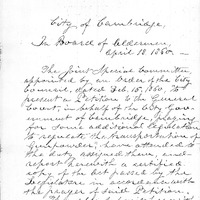 City of Cambridge,
In Board of Aldermen,
April 18 1860.
The Joint Special Committee,
appointed by an Order of the City
Council, dated Feb. 15, 1860, to
present a Petition to the General
Court, in behalf of the City Govern-
ment of Cambridge, praying
for some additional legislation
to regulate the transportation of
Gunpowder, have attended to
the duty assigned them, and
report herewith a certified
copy of the act passed by the
Legislature in accordance with
the prayer of said Petition.